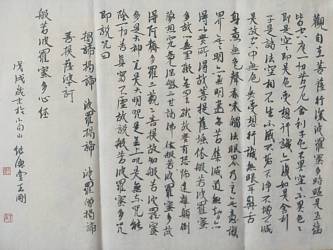 觀自在菩薩行深波羅蜜多時照見五蘊
皆空度一切苦厄舍利子色不異空空不異色色
即是空空即是色受想行識亦復如是舍利
子是諸法空相不生不滅不垢不淨不增不減
是故空中無色無受想行識無眼耳鼻舌
身意無色聲香味觸法無眼界乃至無意識
界無無明亦無無明盡乃至無
得以無所得故菩提薩埵依般若波羅蜜
多故心無罣礙無罣礙故無有恐怖遠離顛倒
夢想究竟涅槃三世諸佛依般若波羅蜜多故
得阿耨多羅三藐三菩提故知般若波羅蜜
多是大神咒是大明咒是無上咒是無等等咒能
除一切苦真實不虛故說般若波羅蜜多咒
即說咒曰
揭諦揭諦 波羅揭諦 波羅僧揭諦
菩提薩婆訶
般若波羅蜜多心經
戊戌歲